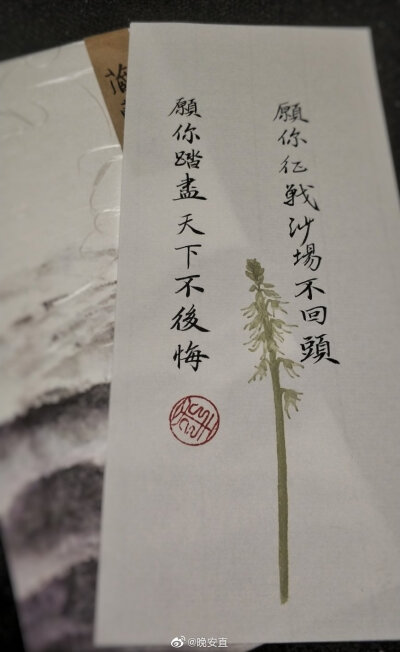 願你征戰沙場不回頭
願你踏盡天下不後悔
@晚安直